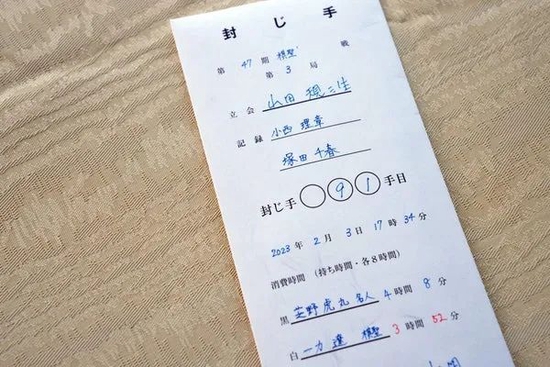 封じ手
第47期棋聖戦
第3局
立会 山田規三生
記録 小西理章
塚田千春
封じ手 91手目
2023年2月3日17時34分
消費時間（持ち時間・各8時間）
黒 芝野虎丸名人 4時間8分
白 一力遼棋聖 3時間52分